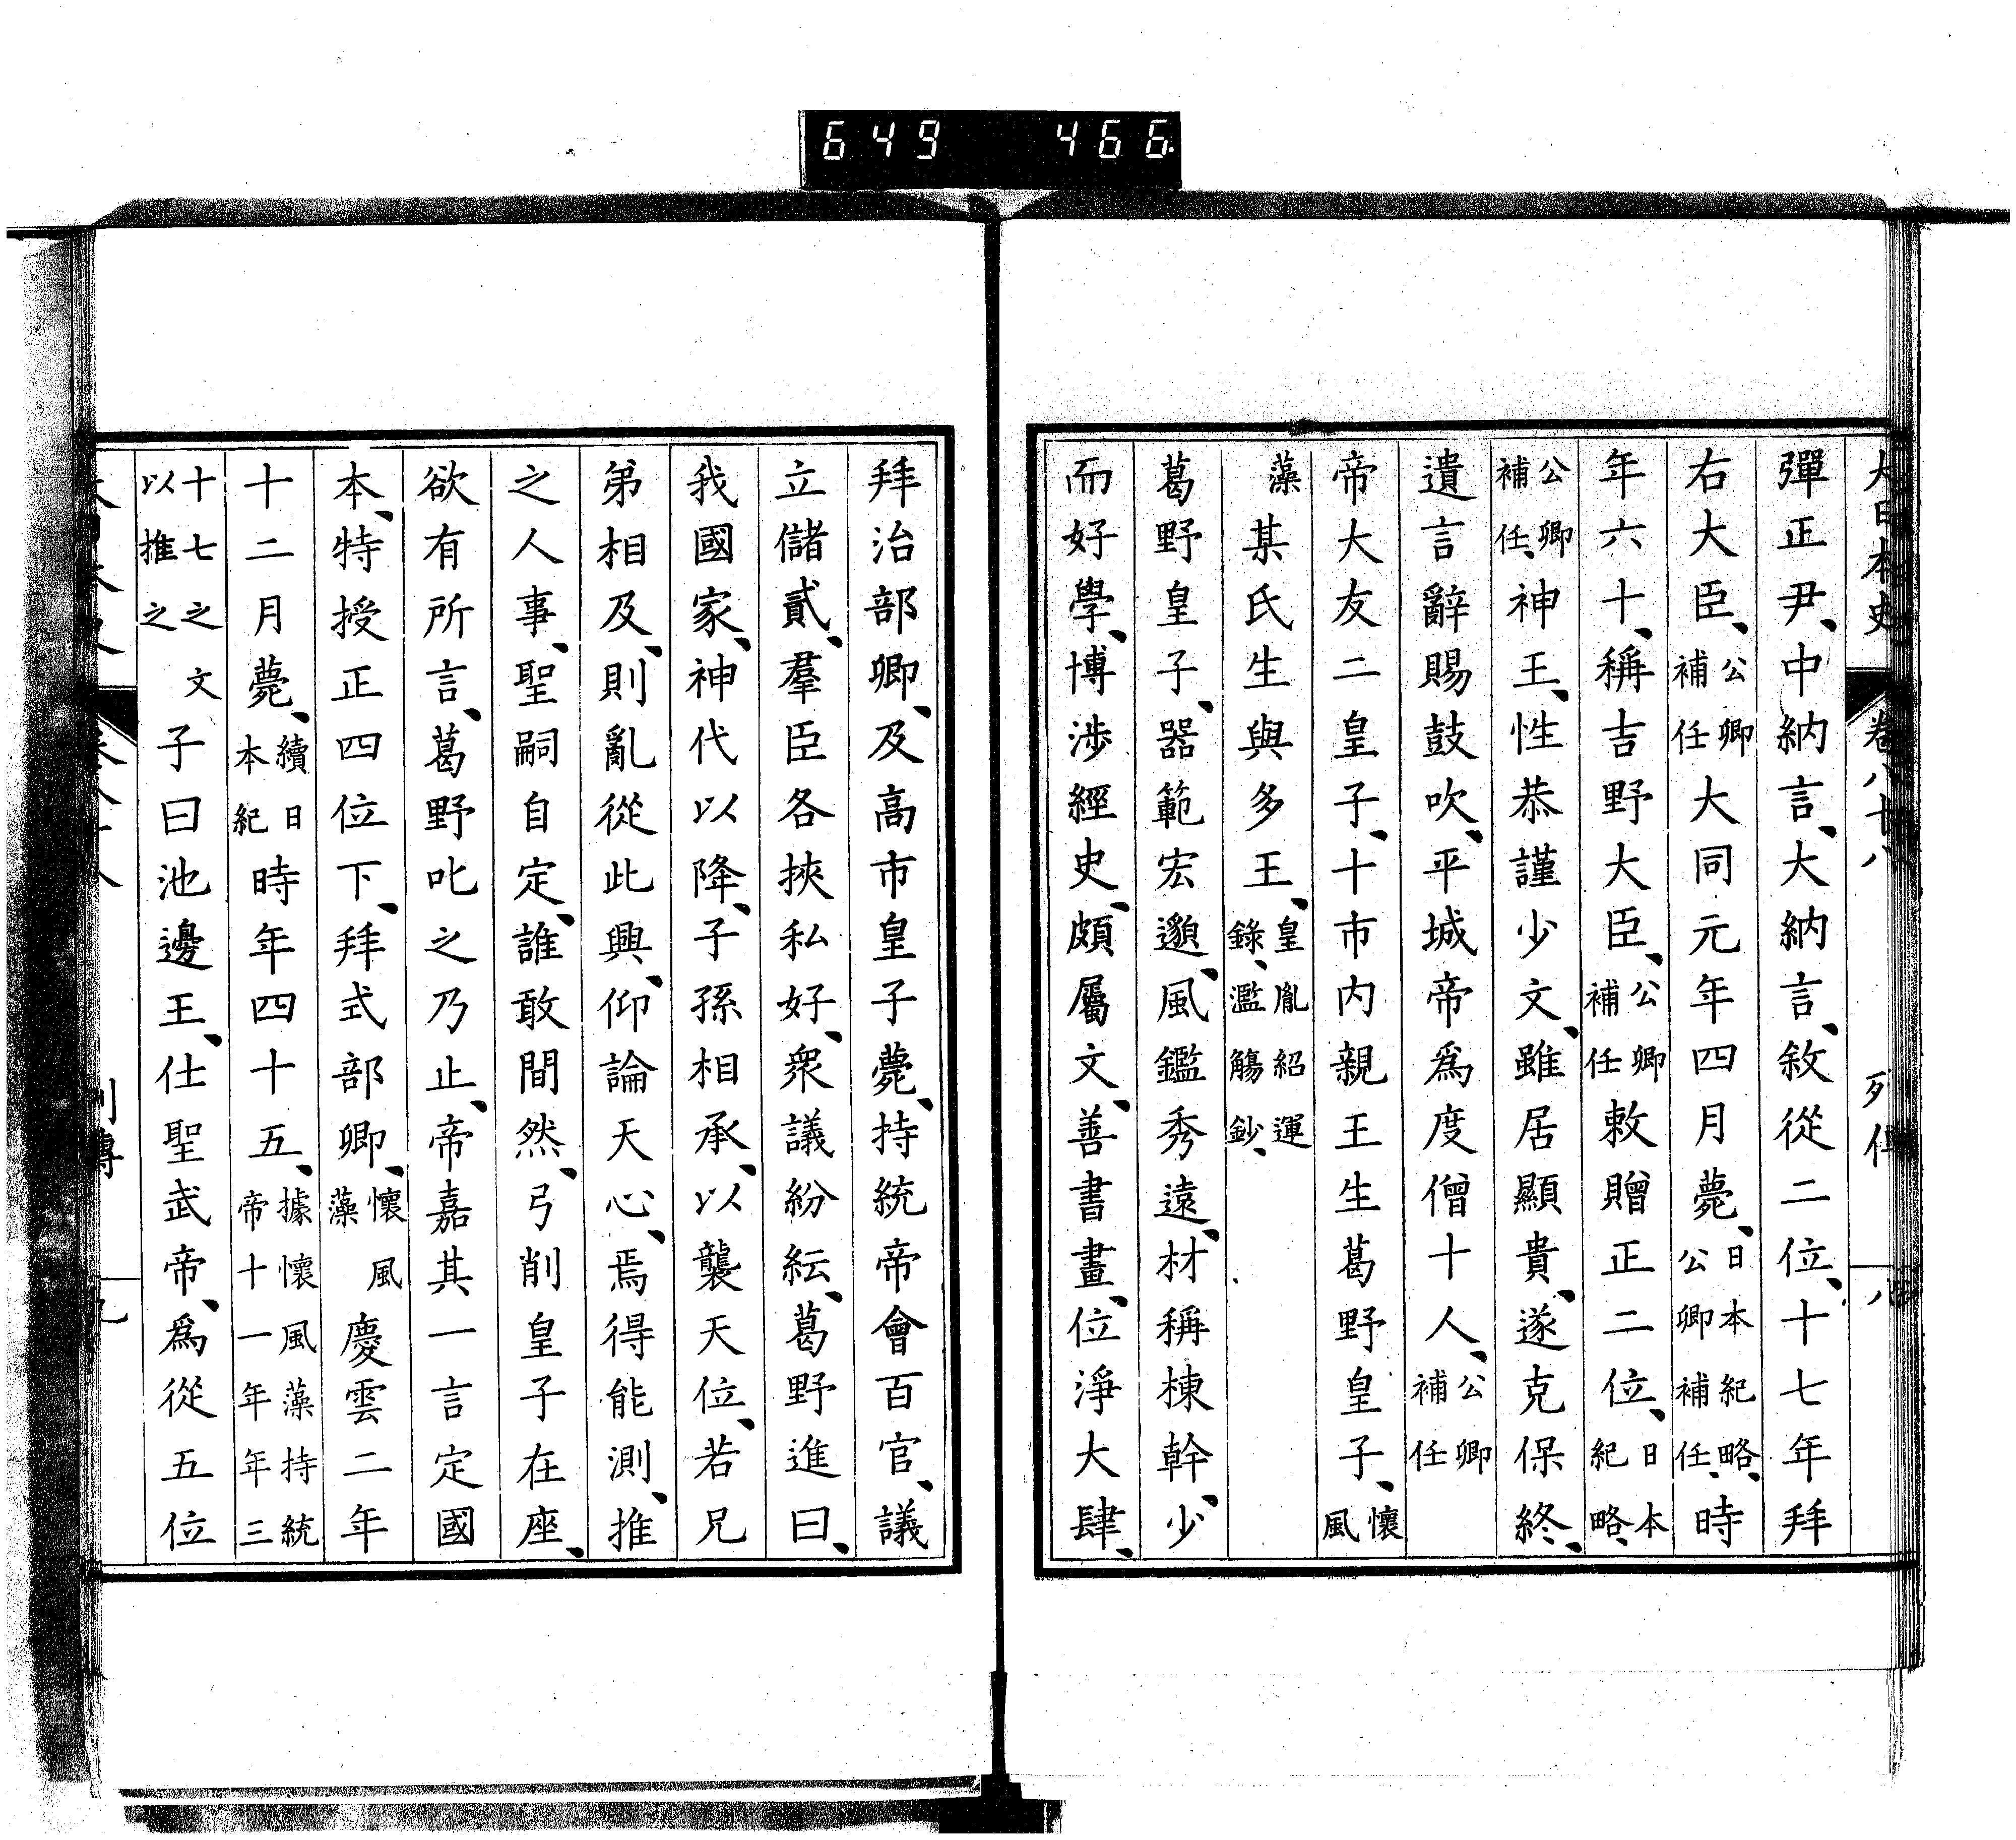 649 466
大日本史 卷八十八 列傳 八
彈正尹、中納言、大納言、敘從二位、十七年拜
右大臣、公卿補任大同元年四月薨、日本紀略、公卿補任、時
年六十、稱吉野大臣、公卿補任敕贈正二位、日本紀略、
公卿補任、神王、性恭謹少文、雖居顯貴、遂克保終、
遺言辭賜鼓吹、平城帝爲度僧十人、公卿補任
帝大友二皇子、十市内親王生葛野皇子、懷風
藻某氏生與多王、皇胤紹運錄、濫觴鈔、
葛野皇子、器範宏邈、風鑑秀遠、材稱棟幹、少
而好學、博渉經史、頗屬文、善書畫、位淨大肆、
拜治部卿、及高市皇子薨、持統帝會百官、議
立儲貳、羣臣各挾私好、衆議紛紜、葛野進曰、
我國家、神代以降、子孫相承、以襲天位、若兄
弟相及、則亂從此興、仰論天心、焉得能測、推
之人事、聖嗣自定、誰敢間然、弓削皇子在座、
欲有所言、葛野叱之乃止、帝嘉其一言定國
本、特授正四位下、拜式部卿、懷風藻慶雲二年
十二月薨、續日本紀時年四十五、據懷風藻持統帝十一年年三
十七之文以推之子曰池邊王、仕聖武帝、爲從五位
列傳